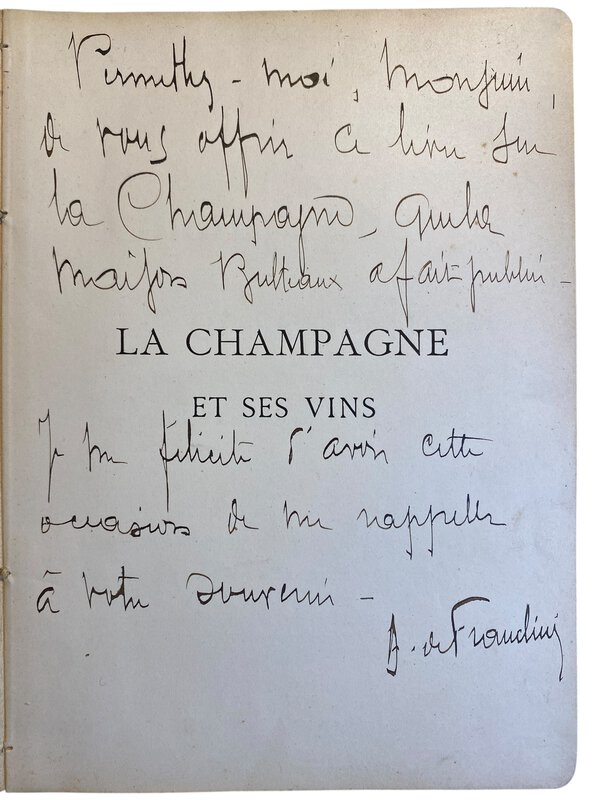 Permettez-moi, Monsieur,
de vous offrir ce livre sur
la Champagne, que la
Maison Bulteaux a fait publier -
LA CHAMPAGNE
ET SES VINS
Je me félicite d'avoir cette
occasion de me rappeler
à votre souvenir -
A. de